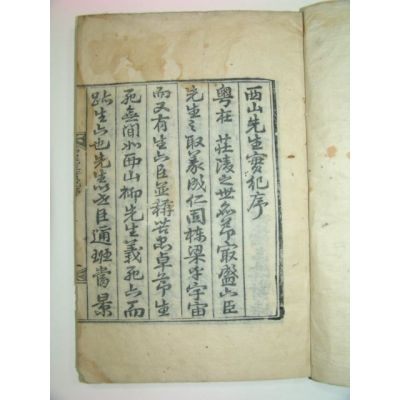 西山先生實紀序
粤在 莊陵之世名節最盛六臣
先生之取義成仁固棟梁乎宇宙
而又有生六臣並稱苦忠卓節生
死無間如西山柳先生義死六而
跡生六也先生以世臣通班當 景